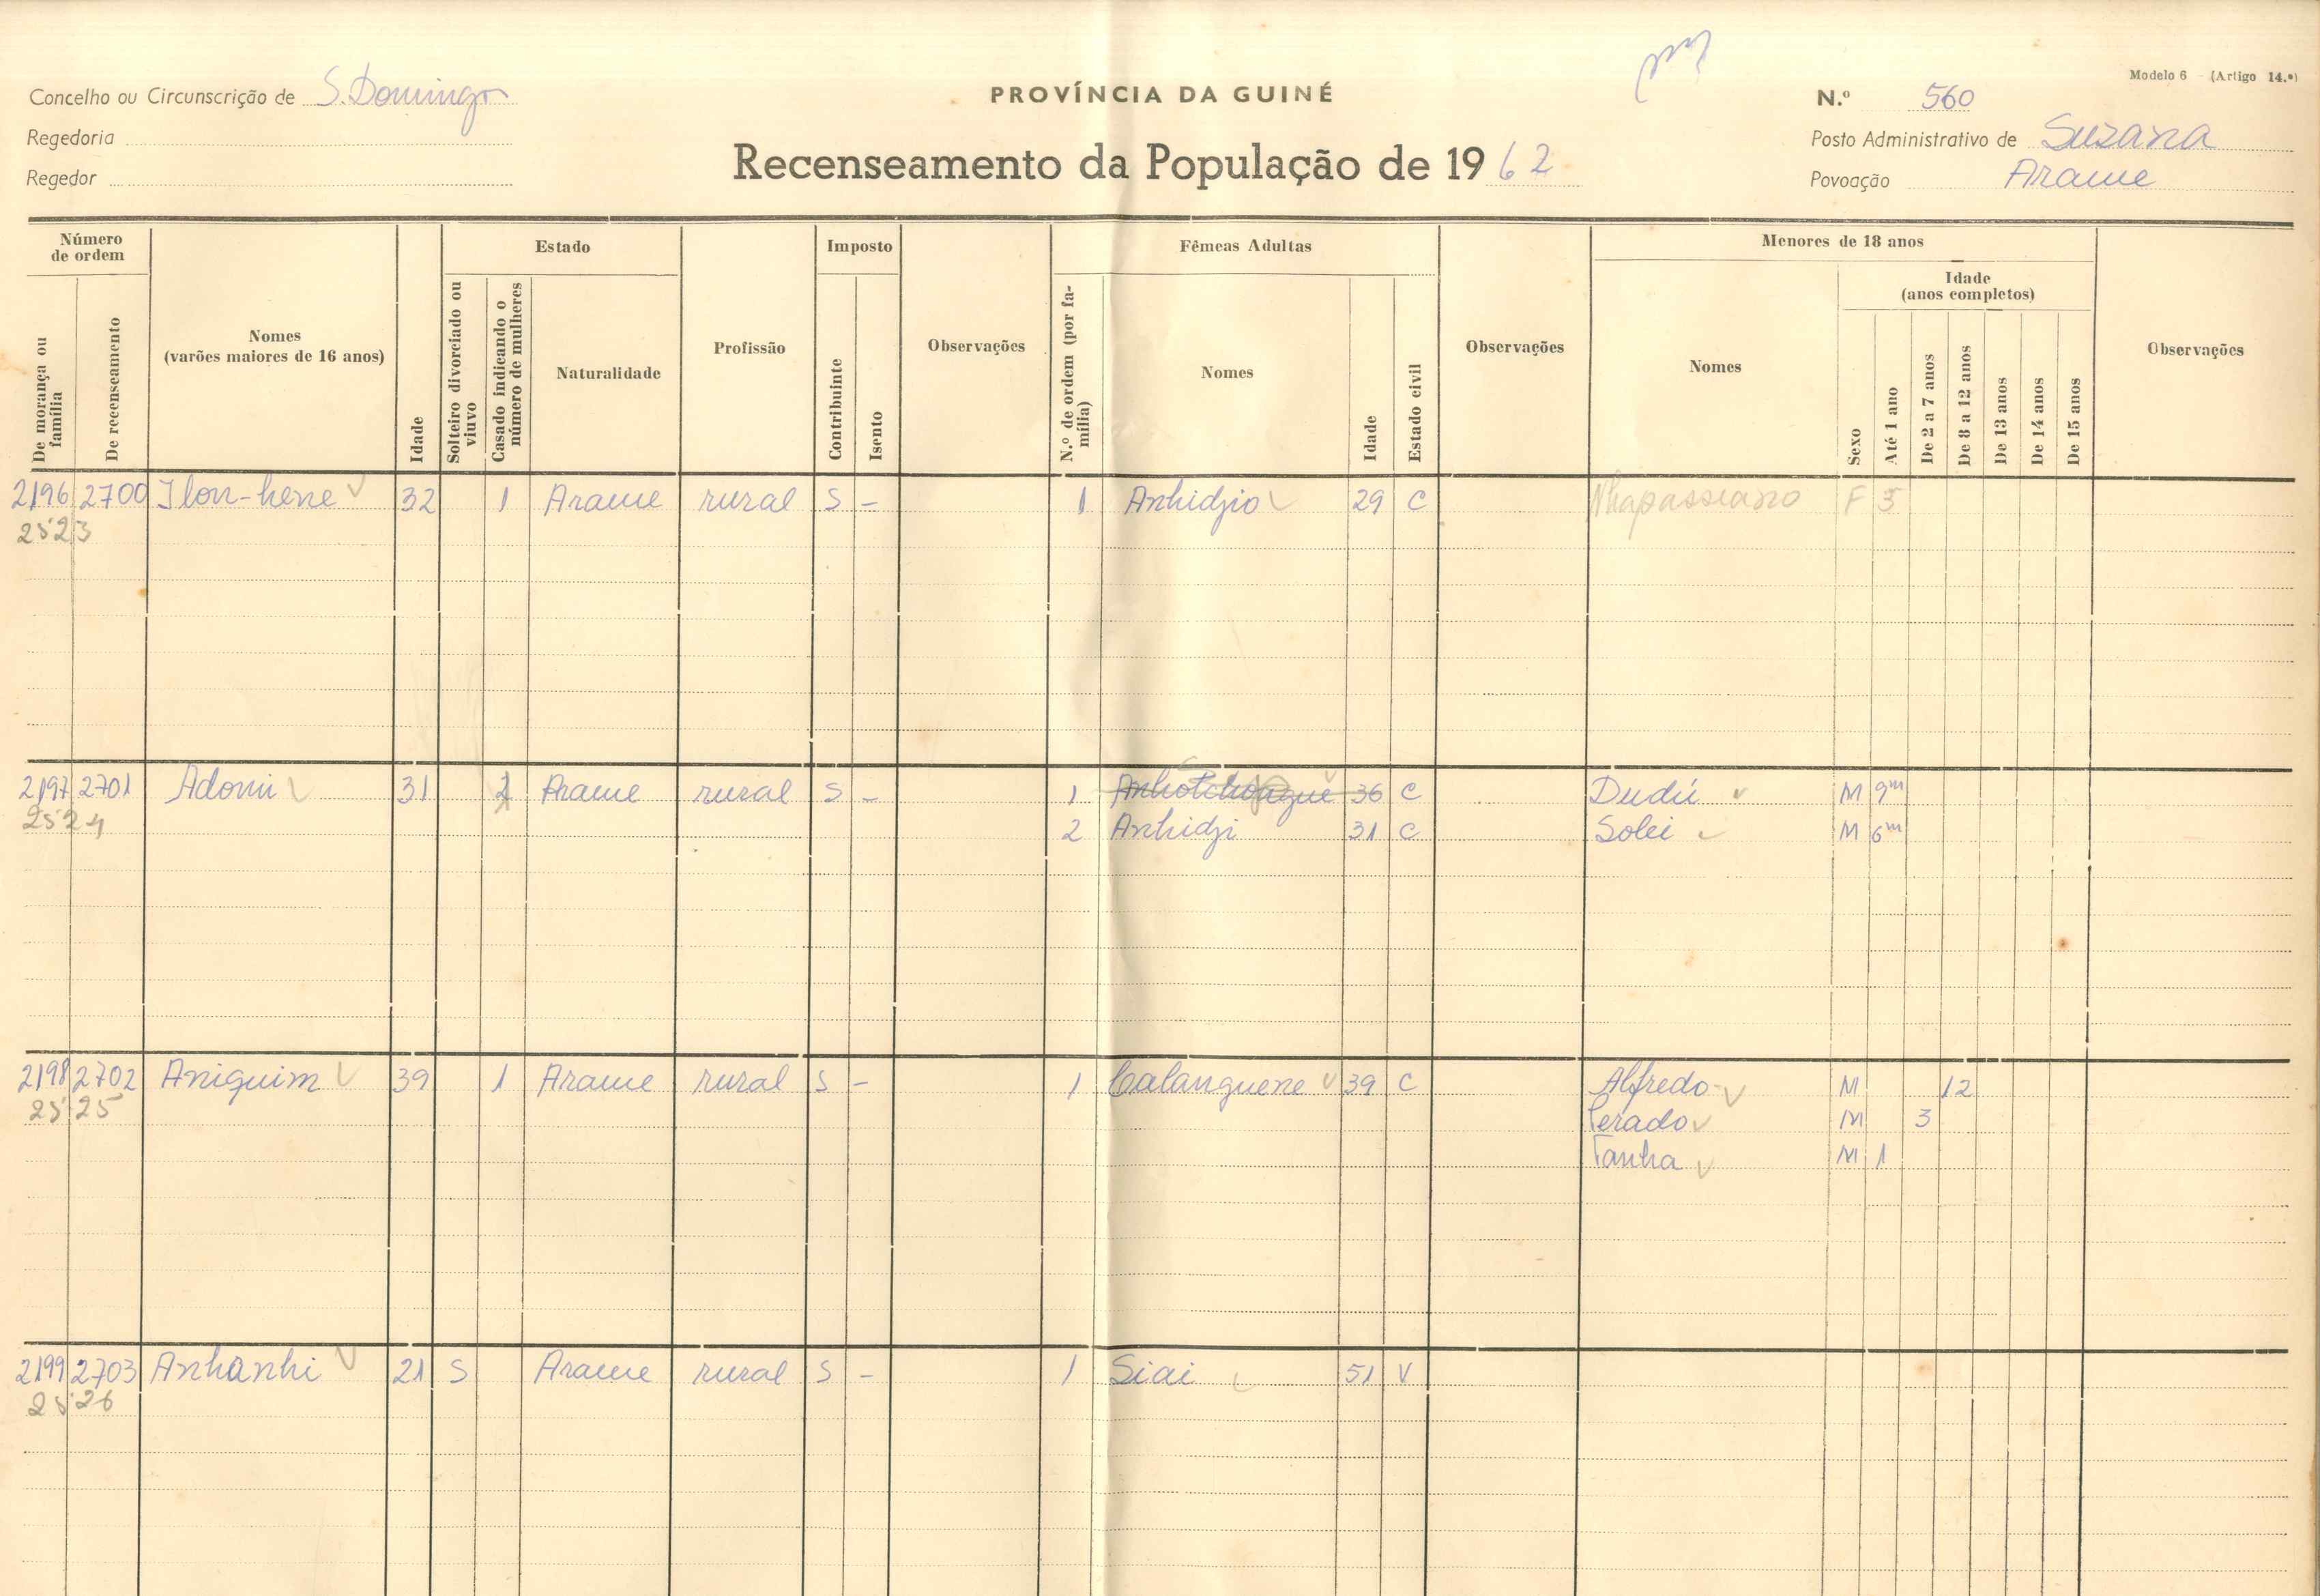 Modelo 6 - (Artigo 14.º)
Concelho ou Circunscrição de S. Domingos
PROVÍNCIA DA GUINÉ
N.º 560
Regedoria
Recenseamento da População de 1962
Posto Administrativo de Suzana
Regedor
Povoação Arame
Número de ordem
De morança ou família
De recenseamento
Nomes
(varões maiores de 16 anos)
Idade
Estado
Solteiro divorciado ou viuvo
Casado indicando o número de mulheres
Naturalidade
Profissão
Imposto
Contribuinte
Isento
Observações
Fêmeas Adultas
N.º de ordem (por família)
Nomes
Idade
Estado civil
Observações
Menores de 18 anos
Nomes
Sexo
Idade
(anos completos)
Até 1 ano
De 2 a 7 anos
De 8 a 12 anos
De 13 anos
De 14 anos
De 15 anos
Observações
2196 2700 Ilon-hene 32 1 Arame rural S - 1 Anhidjio 29 C Nhapasseano F 3
2523
2197 2701 Adomi 31 Arame rural S - 1 36 C Dudú M 9m
2524 2 Anhidji 31 C Solei M 6m
2198 2702 Aniguim 39 1 Arame rural S - 1 Calanguene 39 C Alfredo M 12
2525 M 3
Tanha M 1
2199 2703 Anhanhi 21 S Arame rural S - 1 Siai 51 V
2526